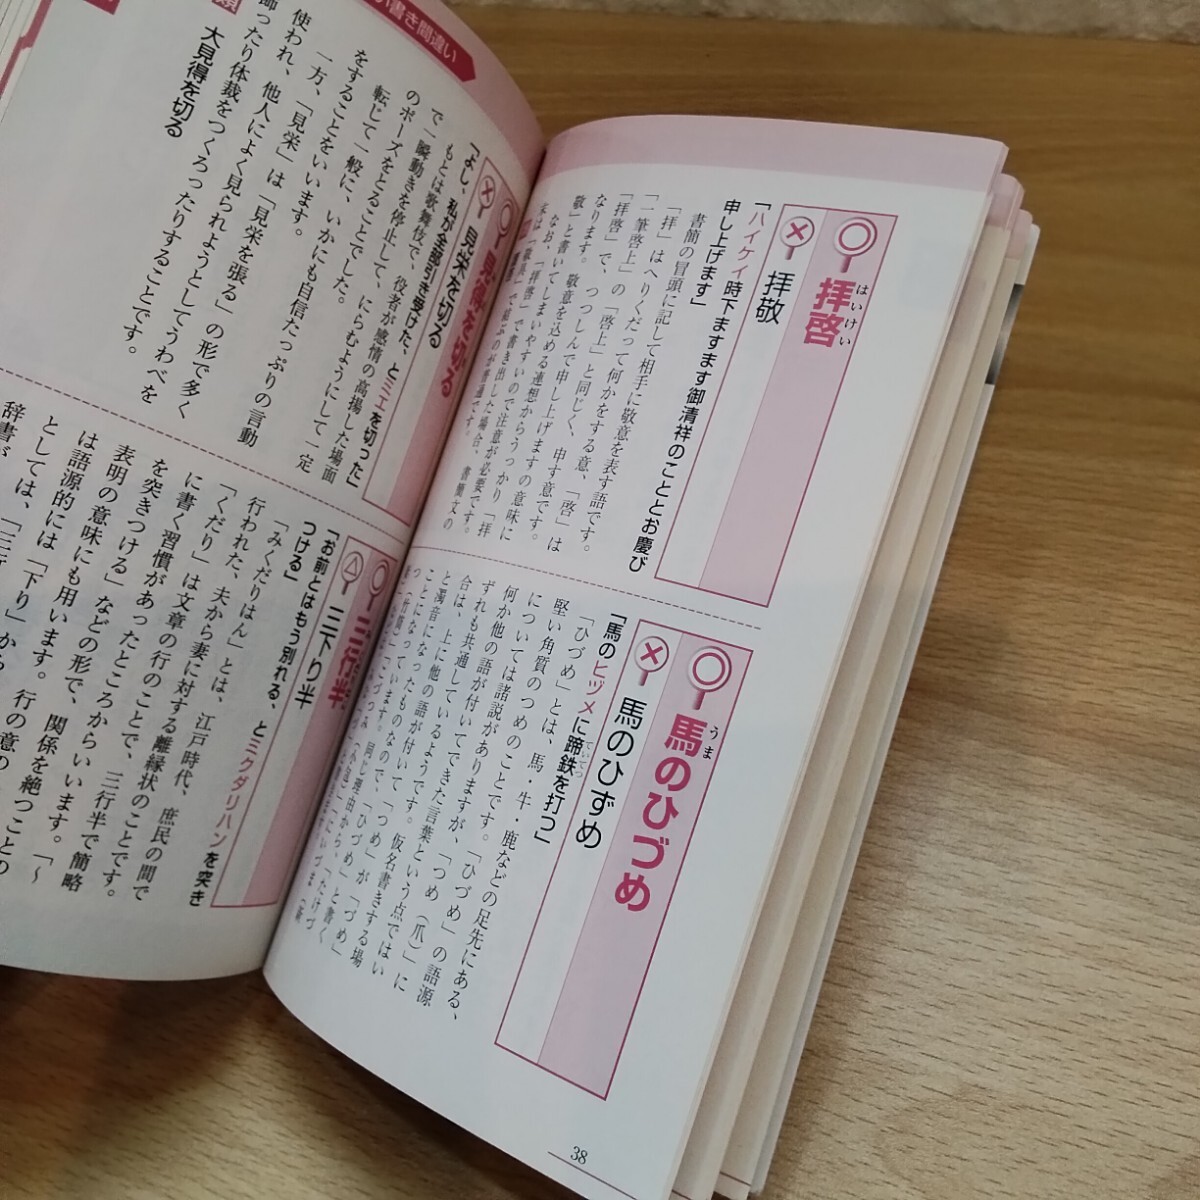 はいけい
拝啓
拝敬
「ハイケイ時下ますます御清祥のこととお慶び
申し上げます」
書簡の冒頭に記して相手に敬意を表す語です。
「拝」はへりくだって何かをする意、「啓」は
「一筆啓上」の「啓上」と同じく、申す意です。
「拝啓」で、つつしんで申し上げますの意味に
なります。敬意を込める連想からうっかり「拝
敬」と書いてしまいやすいので注意が必要です。
なお、「拝啓」で書き出した場合、書簡文の
うま
馬のひづめ
馬のひずめ
「馬のヒヅメに蹄鉄を打つ」
ていてつ
「ひづめ」とは、馬・牛・鹿などの足先にある、
堅い角質のつめのことです。「ひづめ」の語源
については諸説がありますが、「つめ（爪）」に
何か他の語が付いてできた言葉という点ではい
ずれも共通しているようです。仮名書きする場
合は、上に他の語が付いて「つめ」が「づめ」
と濁音になったものなので、「ひづめ」と書く
38
い書き間違い
見得を切る
見栄を切る
「よし、私が全部引き受けた、とミエを切った」
もとは歌舞伎で、役者が感情の高揚した場面
で一瞬動きを停止して、にらむようにして一定
のポーズをとることでした。
転じて一般に、いかにも自信たっぷりの言動
をすることをいいます。
一方、「見栄」は「見栄を張る」の形で多く
使われ、他人によく見られようとしてうわべを
飾ったり体裁をつくろったりすることです。
類
大見得を切る
三行半
三下り半
「お前とはもう別れる、とミクダリハンを突き
つける」
「みくだりはん」とは、江戸時代、庶民の間で
行われた、夫から妻に対する離縁状のことです。
「くだり」は文章の行のことで、三行半で簡略
に書く習慣があったところからいいます。「～
を突きつける」などの形で、関係を絶つことの
表明の意味にも用います。行の意の
は語源的には「下り」から
としては、「三行
辞書が